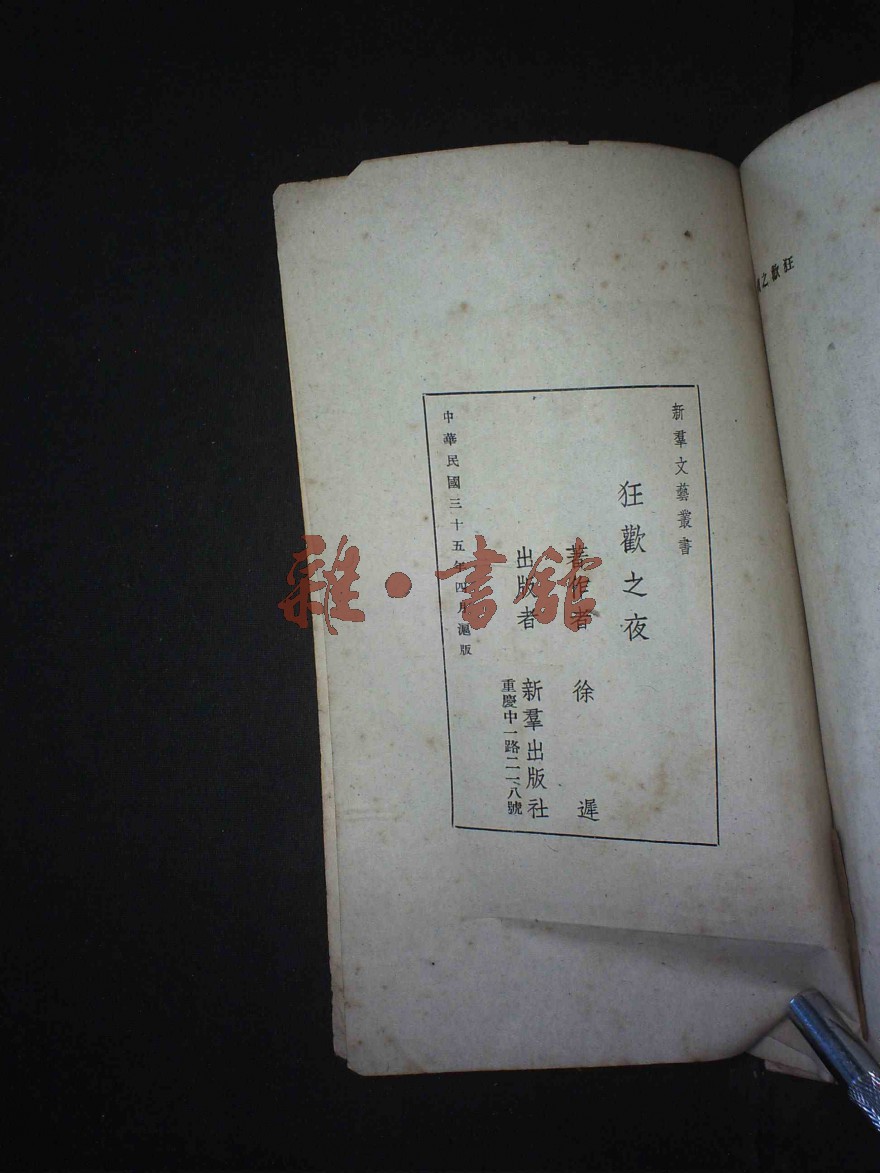 狂歡之
新羣文藝叢書
狂歡之夜
著作者 徐遲
出版者 新羣出版社
重慶中一路二一八號
中華民國三十五年四月滬版
雜·書館